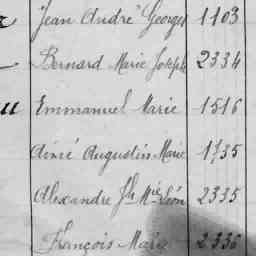 Jean André Georges 1103
Bernard Marie Joseph 2334
Emmanuel Marie 1516
Aimé Augustin Marie 1735
Alexandre Jh Mie Léon 2335
François Marie 2336